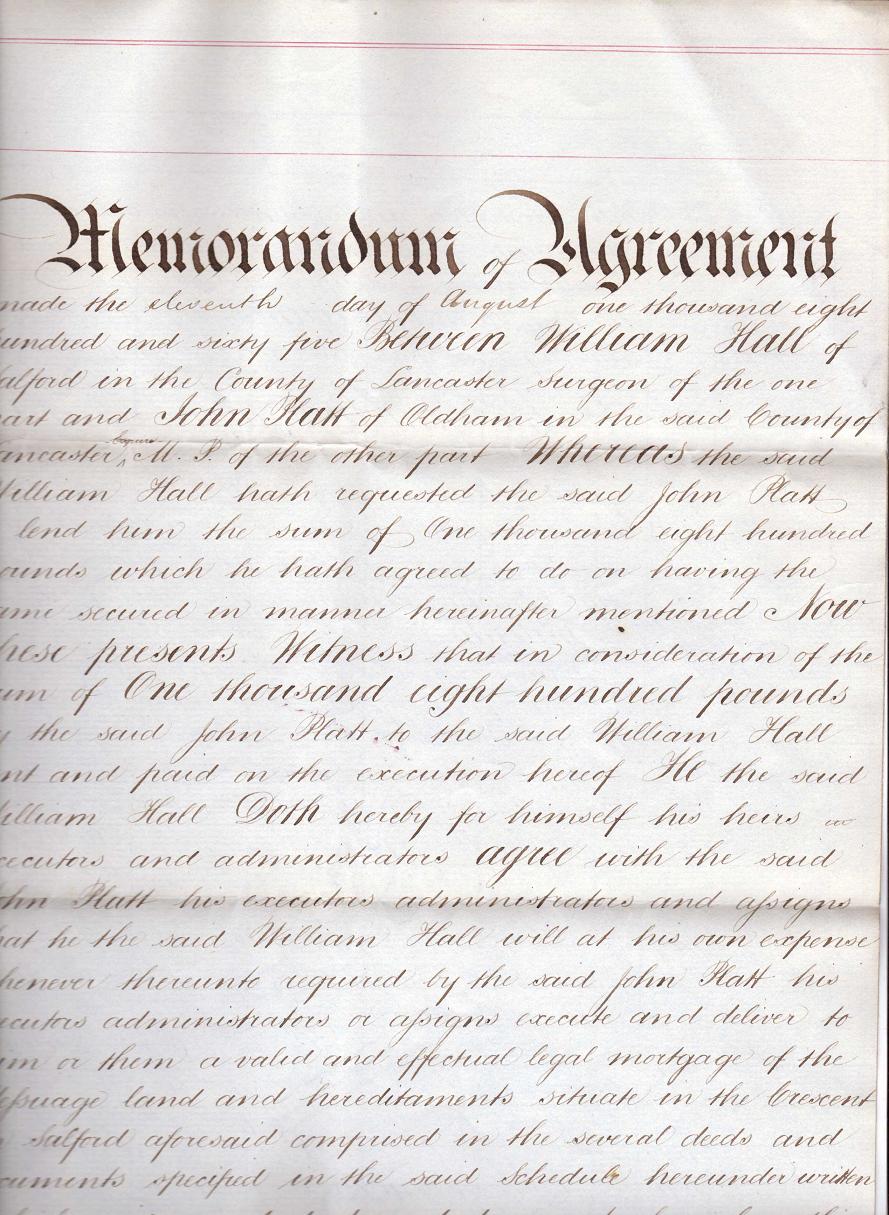 Memorandum of Agreement
made the eleventh day of August one thousand eight
hundred and sixty five Between William Hall of
Salford in the County of Lancaster Surgeon of the one
part and John Platt of Oldham in the said County of
Lancaster Esquire M. P. of the other part Whereas the said
William Hall hath requested the said John Platt
lend him the sum of One thousand eight hundred
ounds which he hath agreed to do on having the
ame secured in manner hereinafter mentioned Now
hese presents Witness that in consideration of the
um of One thousand eight hundred pounds
y the said John Platt to the said William Hall
nt and paid on the execution hereof He the said
William Hall Doth hereby for himself his heirs
xecutors and administrators agree with the said
ohn Platt his executors administrators and assigns
hat he the said William Hall will at his own expense
henever thereunto required by the said John Platt his
ecutors administrators or assigns execute and deliver to
im or them a valid and effectual legal mortgage of the
essuage land and hereditaments situate in the Crescent
Salford aforesaid comprised in the several deeds and
cuments specified in the said Schedule hereunder written